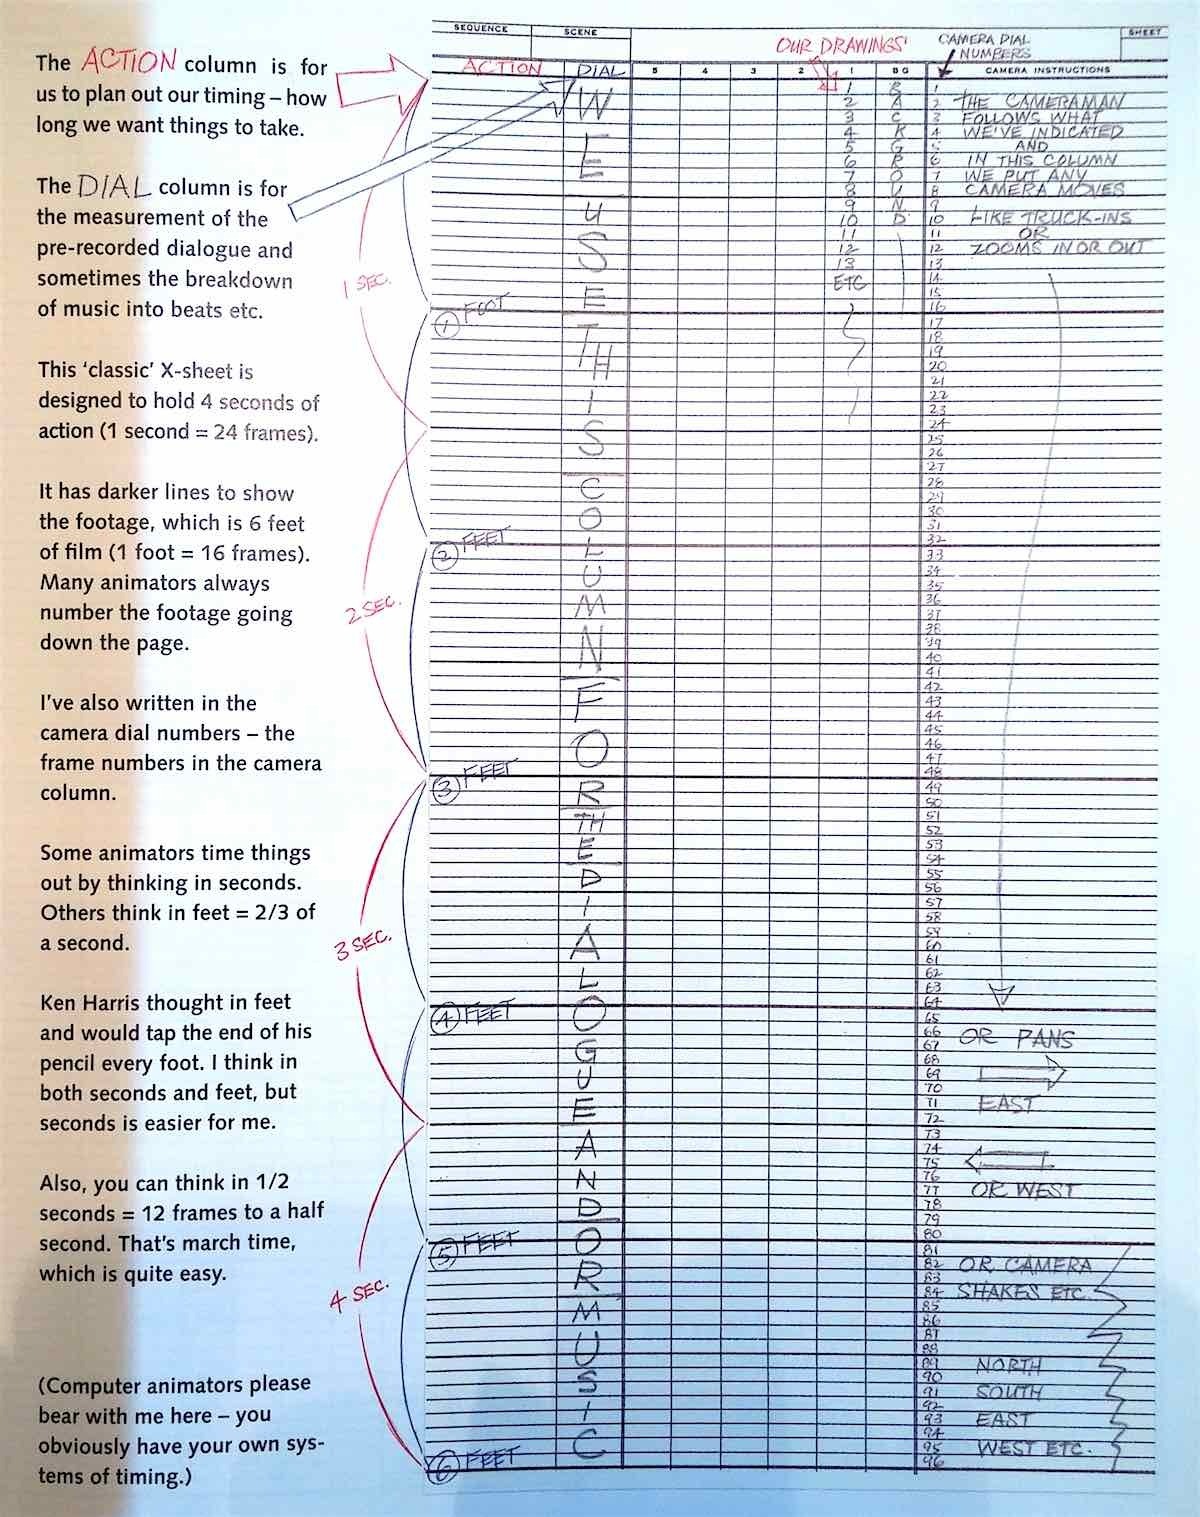 The ACTION column is for
us to plan out our timing – how
long we want things to take.
The DIAL column is for
the measurement of the
pre-recorded dialogue and
sometimes the breakdown
of music into beats etc.
This ‘classic’ X-sheet is
designed to hold 4 seconds of
action (1 second = 24 frames).
It has darker lines to show
the footage, which is 6 feet
of film (1 foot = 16 frames).
Many animators always
number the footage going
down the page.
I’ve also written in the
camera dial numbers – the
frame numbers in the camera
column.
Some animators time things
out by thinking in seconds.
Others think in feet = 2/3 of
a second.
Ken Harris thought in feet
and would tap the end of his
pencil every foot. I think in
both seconds and feet, but
seconds is easier for me.
Also, you can think in 1/2
seconds = 12 frames to a half
second. That’s march time,
which is quite easy.
(Computer animators please
bear with me here – you
obviously have your own sys-
tems of timing.)
1 SEC.
2 SEC.
3 SEC.
4 SEC.
SEQUENCE
SCENE
SHEET
OUR DRAWINGS
CAMERA DIAL
NUMBERS
ACTION DIAL 5 4 3 2 1 BG CAMERA INSTRUCTIONS
1 FOOT
2 FEET
3 FEET
4 FEET
5 FEET
6 FEET
WE USE THIS COLUMN FOR THE DIALOGUE AND OR MUSIC
1
2
3
4
5
6
7
8
9
10
11
12
13
ETC
BACKGROUND
1
2
3
4
5
6
7
8
9
10
11
12
13
14
15
16
17
18
19
20
21
22
23
24
25
26
27
28
29
30
31
32
33
34
35
36
37
38
39
40
41
42
43
44
45
46
47
48
49
50
51
52
53
54
55
56
57
58
59
60
61
62
63
64
65
66
67
68
69
70
71
72
73
74
75
76
77
78
79
80
81
82
83
84
85
86
87
88
89
90
91
92
93
94
95
96
THE CAMERAMAN
FOLLOWS WHAT
WE'VE INDICATED
AND
IN THIS COLUMN
WE PUT ANY
CAMERA MOVES
LIKE TRUCK-INS
OR
ZOOMS IN OR OUT
OR PANS
EAST
OR WEST
OR CAMERA
SHAKES ETC.
NORTH
SOUTH
EAST
WEST ETC.